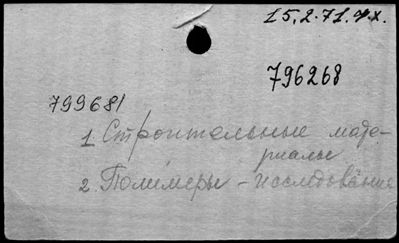 15.2.71.
796268
799681
1. Строительные мате-
риалы
2. Полимеры - исследование